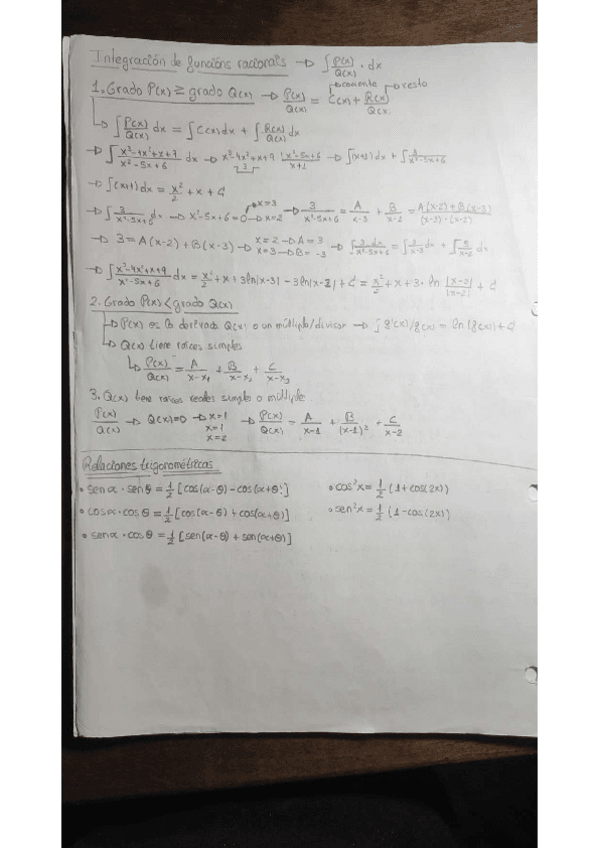 Integración de funcións racionais → ∫ P(x)/Q(x) · dx
1. Grado P(x) ≥ grado Q(x) → P(x)/Q(x) = C(x) + R(x)/Q(x) → cociente → resto
↳ ∫ P(x)/Q(x) dx = ∫ C(x) dx + ∫ R(x)/Q(x) dx
→ ∫ x³-4x²+x+9/x²-5x+6 dx → x³-4x²+x+9 | x²-5x+6 x+1 3 → ∫(x+1) dx + ∫ 3/x²-5x+6
→ ∫(x+1) dx = x²/2 + x + C
→ ∫ 3/x²-5x+6 dx → x²-5x+6=0 → x=3 → x=2 → 3/x²-5x+6 = A/x-3 + B/x-2 = A(x-2)+B(x-3)/(x-3)·(x-2)
→ 3=A(x-2)+B(x-3) → x=2→A=3 → x=3→B=-3 → ∫ 3 dx/x²-5x+6 = ∫ 3/x-3 dx + ∫ 3/x-2 dx
→ ∫ x³-4x²+x+9/x²-5x+6 dx = x²/2 + x + 3ln|x-3| - 3ln|x-2| + C = x²/2 + x + 3· ln |x-3|/|x-2| + C
2. Grado P(x) < grado Q(x)
↳ P(x) es a derivada Q(x) o un múltiplo/divisor → ∫ g'(x)/g(x) = ln|g(x)| + C
↳ Q(x) tiene raíces simples
↳ P(x)/Q(x) = A/x-x₁ + B/x-x₂ + C/x-x₃
3. Q(x) tiene raíces reales simple o múltiple
P(x)/Q(x) → Q(x)=0 → x=1 x=1 x=2 → P(x)/Q(x) = A/x-1 + B/(x-1)² + C/x-2
Relaciones trigonométricas
• sen α · sen θ = 1/2 [cos(α-θ) - cos(α+θ)]
• cos α · cos θ = 1/2 [cos(α-θ) + cos(α+θ)]
• sen α · cos θ = 1/2 [sen(α-θ) + sen(α+θ)]
• cos²x = 1/2 (1+cos(2x))
• sen²x = 1/2 (1-cos(2x))